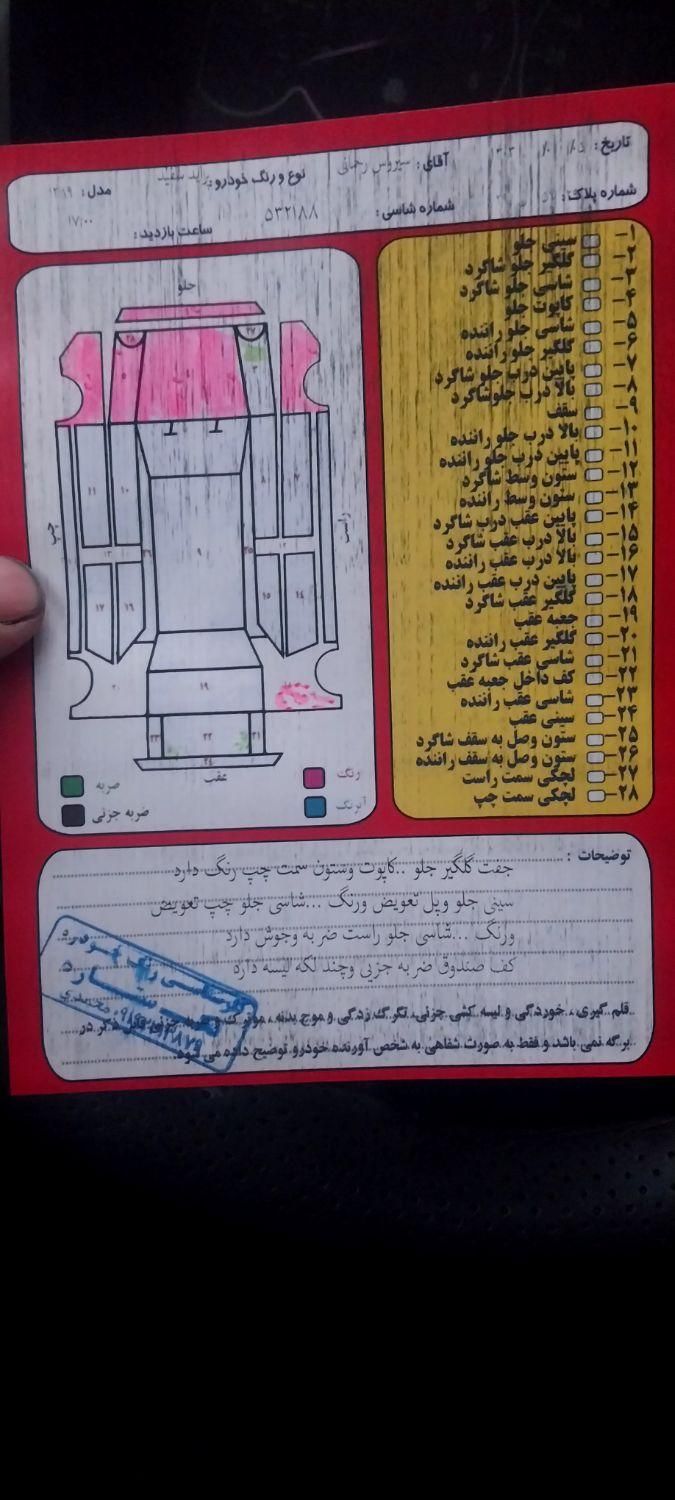 تاریخ:
آقای: سیروس رحمانی
نوع و رنگ خودرو: پراید سفید
مدل:
شماره پلاک:
شماره شاسی: ۵۳۲۱۸۸
ساعت بازدید: ۱۷:۰۰
۱- سینی جلو
۲- گلگیر جلو شاگرد
۳- شاسی جلو شاگرد
۴- کاپوت جلو
۵- شاسی جلو راننده
۶- گلگیر جلو راننده
۷- پایین درب جلو شاگرد
۸- بالا درب جلوشاگرد
۹- سقف
۱۰- بالا درب جلو راننده
۱۱- پایین درب جلو راننده
۱۲- ستون وسط شاگرد
۱۳- ستون وسط راننده
۱۴- پایین عقب درب شاگرد
۱۵- بالا درب عقب شاگرد
۱۶- بالا درب عقب راننده
۱۷- پایین درب عقب راننده
۱۸- گلگیر عقب شاگرد
۱۹- جعبه عقب
۲۰- گلگیر عقب راننده
۲۱- شاسی عقب شاگرد
۲۲- کف داخل جعبه عقب
۲۳- شاسی عقب راننده
۲۴- سینی عقب
۲۵- ستون وصل به سقف شاگرد
۲۶- ستون وصل به سقف راننده
۲۷- لچکی سمت راست
۲۸- لچکی سمت چپ
جلو
۲۸ ۲۷
۳
۱۱ ۱۰ ۸
چپ
راست
۹
۱۷ ۱۶ ۱۵ ۱۴
۲۰ ۱۹
۲۳ ۲۲ ۲۱
۲۴
عقب
رنگ
آبرنگ
ضربه
ضربه جزئی
توضیحات :
جفت گلگیر جلو ..کاپوت وستون سمت چپ رنگ دارد
سینی جلو وپل تعویض ورنگ ...شاسی جلو چپ تعویض
ورنگ ...شاسی جلو راست ضربه وجوش دارد
کف صندوق ضربه جزیی وچند لکه لیسه داره
قلم گیری ، خوردگی و لیسه کشی جزئی، تگرگ زدگی و موج بدنه ، موتر ک و ضربه جزئی قابل ذکر در
برگه نمی باشد و فقط به صورت شفاهی به شخص آورنده خودرو توضیح داده می شود.
کارشناسی رنگ خودرو